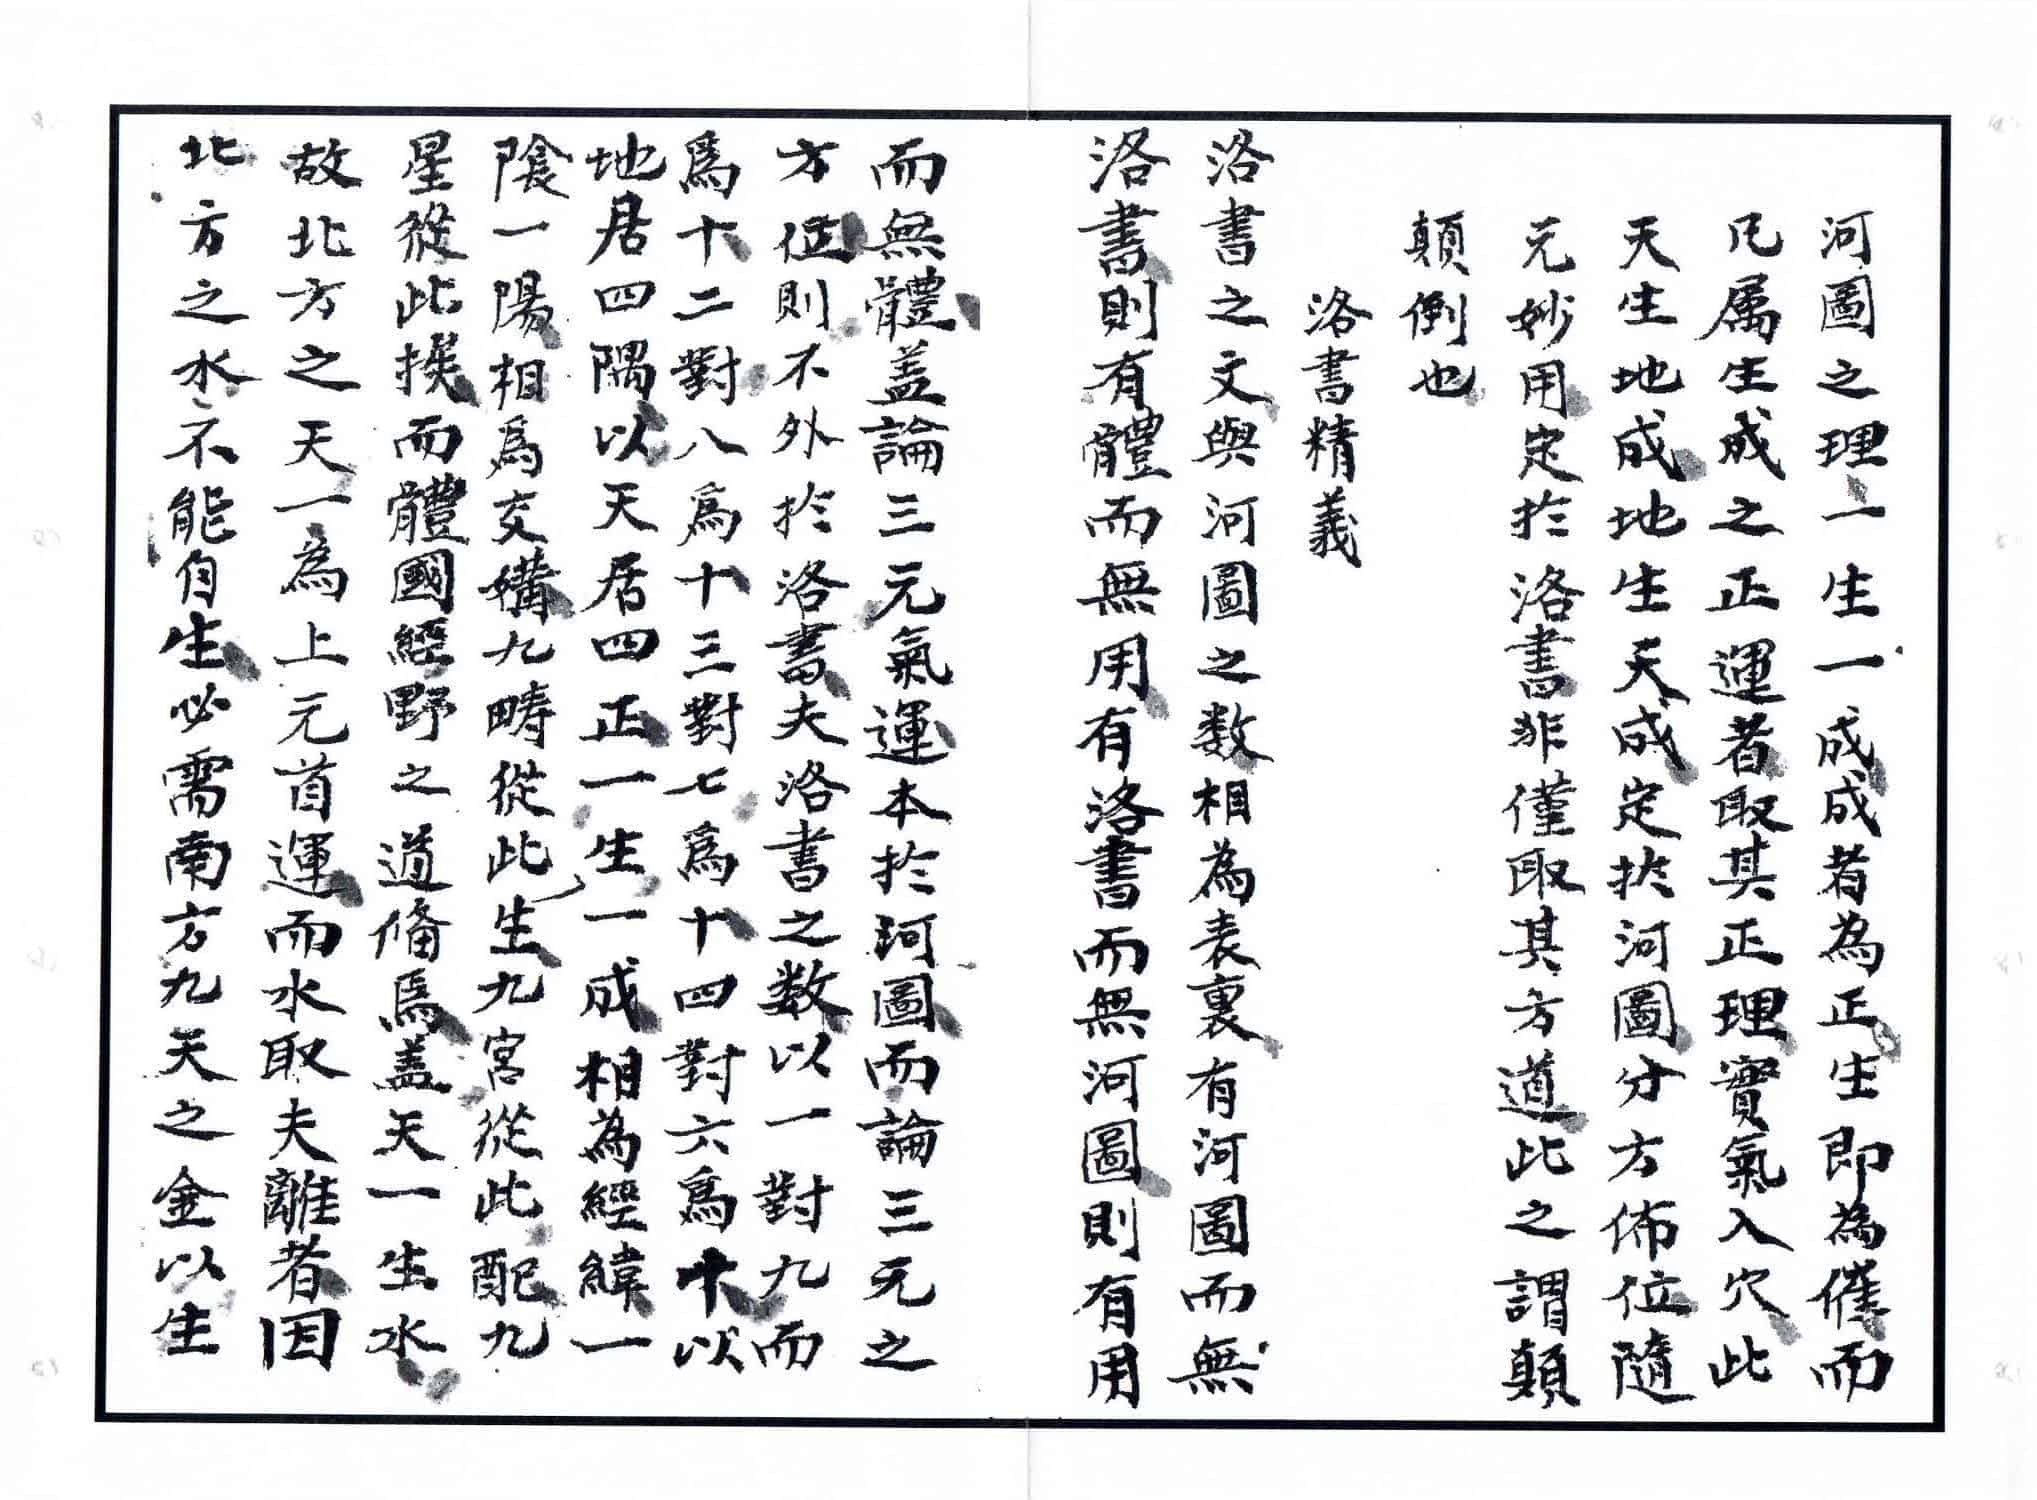 河圖之理一生一成成者為正生即為催而
凡属生成之正運者取其正理實氣入穴此
天生地成地生天成定扵河圖分方佈位隨
元妙用定扵洛書非僅取其方道此之謂顛
顛倒也
洛書精義
洛書之文與河圖之数相為表裏有河圖而無
洛書則有體而無用有洛書而無河圖則有用
而無體盖論三元氣運本扵河圖而論三元之
方位則不外扵洛書夫洛書之数以一對九而
爲十二對八爲十三對七爲十四對六爲十以
地居四隅以天居四正一生一成相為經緯一
陰一陽相爲交媾九疇從此生九宮從此配九
星從此撰而體國經野之道偹焉盖天一生水
故北方之天一為上元首運而水取夫離者因
北方之水不能自生必需南方九天之金以生